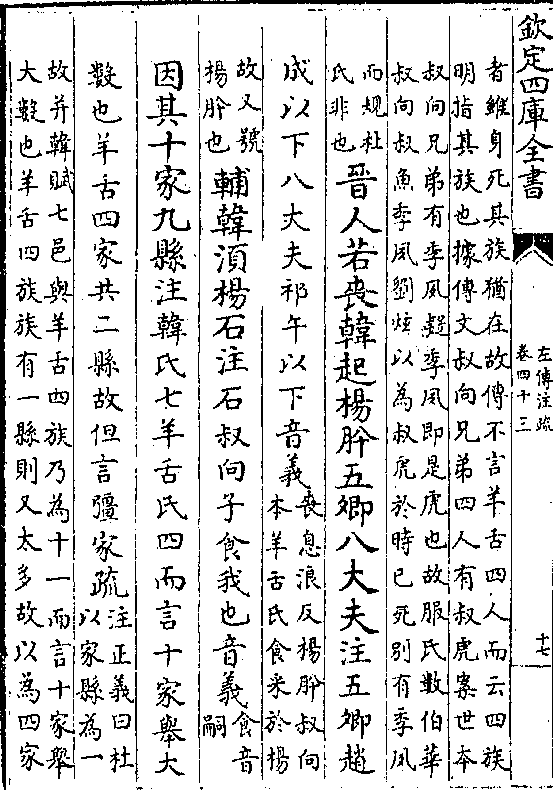 欽定四庫全書
左傳注疏
卷四十三
十七
者雖身死其族猶在故傳不言羊舌四人而云四族
明指其族也據傳文叔向兄弟四人有叔虎案世本
叔向兄弟有季夙疑季夙即是虎也故服氏數伯華
叔向叔魚季夙劉炫以為叔虎於時已死別有季夙
而規杜
氏非也
晉人若喪韓起楊肸五卿八大夫注五卿趙
成以下八大夫祁午以下音義
喪息浪反楊肸叔向
本羊舌氏食采於楊
故又號
楊肸也
輔韓湏楊石注石叔向子食我也音義
食音
嗣
因其十家九縣注韓氏七羊舌氏四而言十家舉大
數也羊舌四家共二縣故但言彊家疏
注正義曰杜
以家縣為一
故并韓賦七邑與羊舌四族乃為十一而言十家舉
大數也羊舌四族族有一縣則又太多故以為四家